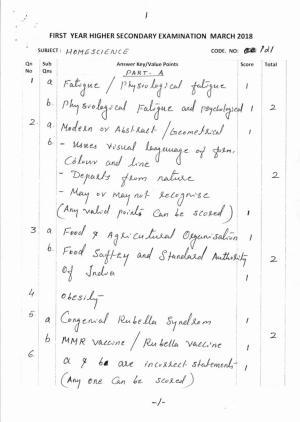 1
FIRST YEAR HIGHER SECONDARY EXAMINATION MARCH 2018
SUBJECT: HOMESCIENCE CODE. NO: 121
Qn No Sub Qns Answer Key/Value Points Score Total
PART - A
1 a Fatigue / Physiological fatigue 1
b. Physiological Fatigue and psychological 1 2
2. a. Modern or Abstract / Geometrical 1
b - Uses visual language of form,
Colour and line
- Departs from nature 2
- May or may not recognise
(Any valid points can be scored) 1
3 a Food & Agricultural Organisation 1
b. Food Saftey and Standard Authority 2
Of India 1
4 Obesity 1
5 a Congenial Rubella Syndrom 1
b MMR vaccine / Rubella vaccine 1 2
6 a & b are incorrect statements 1
(Any one can be scored)
-/-